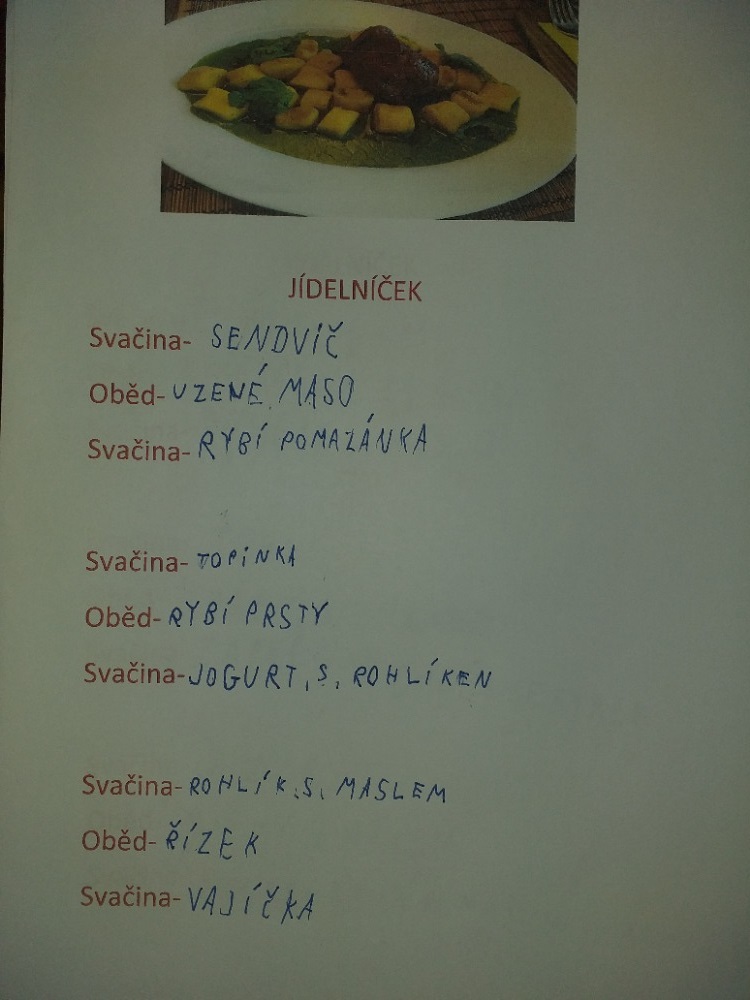 JÍDELNÍČEK
Svačina- SENDVÍČ
Oběd- UZENÉ MASO
Svačina- RYBÍ POMAZÁNKA
Svačina- TOPINKA
Oběd- RYBÍ PRSTY
Svačina- JOGURT, S, ROHLÍKEN
Svačina- ROHLÍK, S, MASLEM
Oběd- ŘÍZEK
Svačina- VAJÍČKA